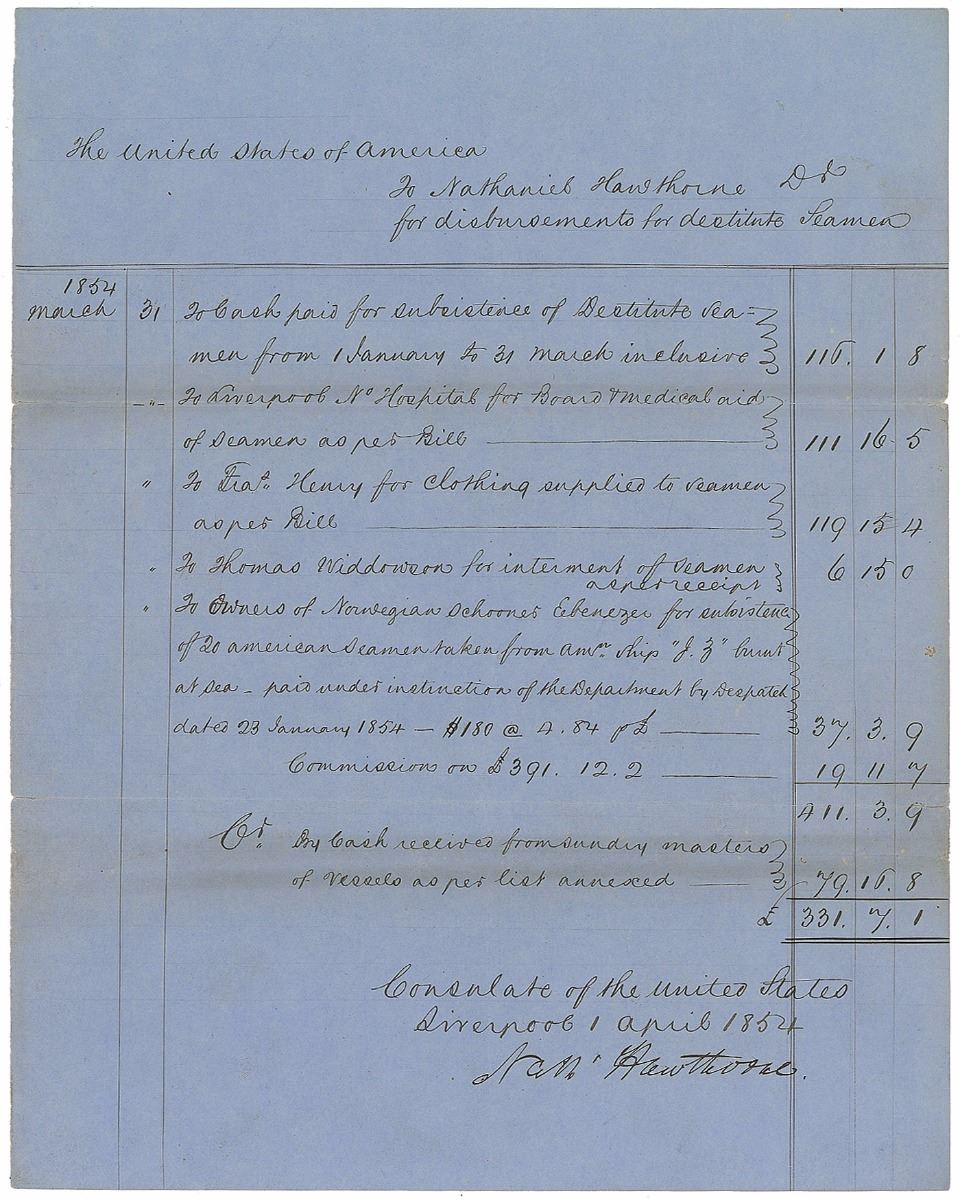 The United States of America
To Nathaniel Hawthorne Dr
for disbursements for destitute Seamen
1854
March 31 To Cash paid for subsistence of Destitute Sea=
men from 1 January to 31 March inclusive 116. 1 8
-"- To Liverpool No Hospital for Board & medical aid
of Seamen as per Bill 111 16 5
" To Fras. Henry for Clothing supplied to Seamen
as per Bill 119 15 4
" To Thomas Widdowson for interment of Seamen
as per receipt 6 15 0
" To Owners of Norwegian Schooner Ebenezer for subsistence
of 20 american Seamen taken from Amn. Ship "J. Z" burnt
at sea - paid under instruction of the Department by Despatch
dated 23 January 1854 — $180 @ 4.84 p £ 37. 3. 9
Commission on £391. 12. 2 19 11 7
411. 3. 9
Cr. By Cash received from sundry masters
of Vessels as per list annexed 79. 16. 8
£ 331. 7. 1
Consulate of the United States
Liverpool 1 April 1854
Nathl Hawthorne.